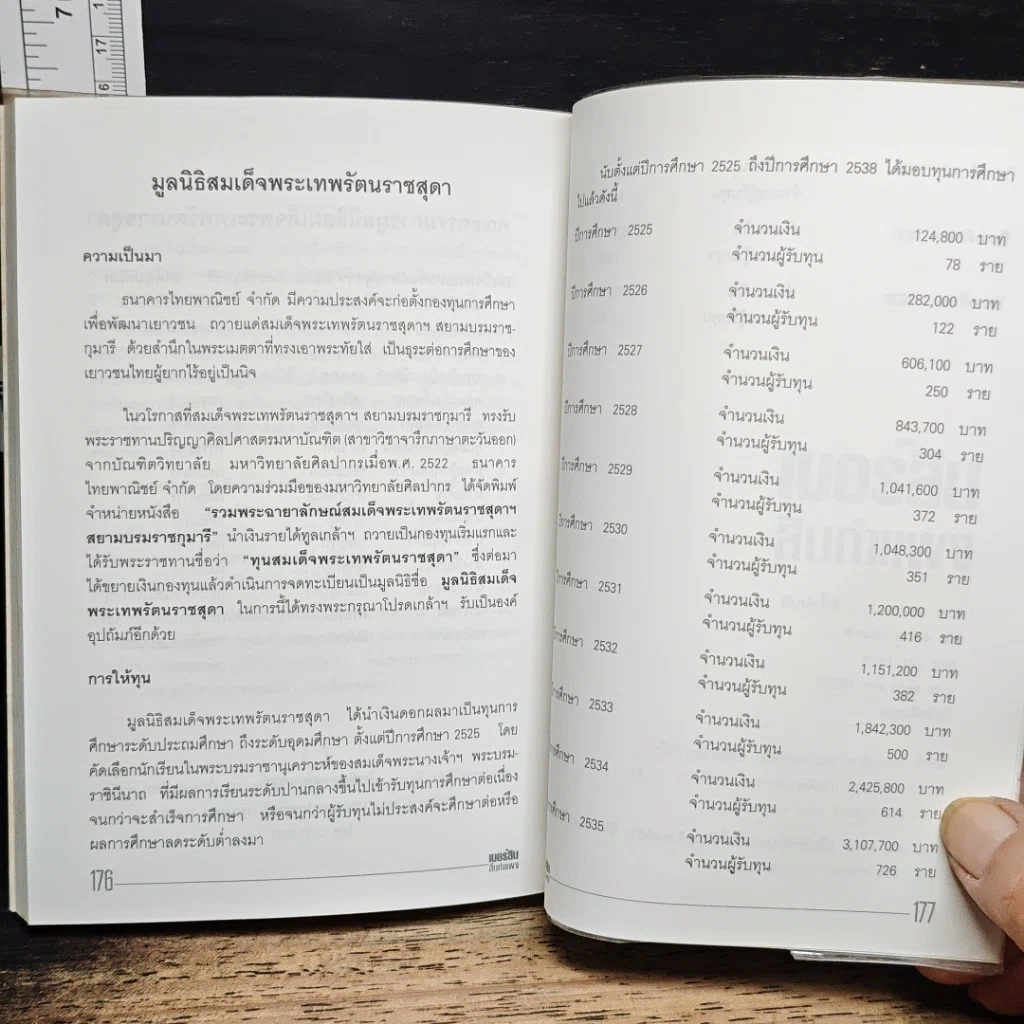 7
17
16
มูลนิธิสมเด็จพระเทพรัตนราชสุดา
ความเป็นมา
ธนาคารไทยพาณิชย์ จำกัด มีความประสงค์จะก่อตั้งกองทุนการศึกษา
เพื่อพัฒนาเยาวชน ถวายแด่สมเด็จพระเทพรัตนราชสุดาฯ สยามบรมราช-
กุมารี ด้วยสำนึกในพระเมตตาที่ทรงเอาพระทัยใส่ เป็นธุระต่อการศึกษาของ
เยาวชนไทยผู้ยากไร้อยู่เป็นนิจ
ในวโรกาสที่สมเด็จพระเทพรัตนราชสุดาฯ สยามบรมราชกุมารี ทรงรับ
พระราชทานปริญญาศิลปศาสตรมหาบัณฑิต (สาขาวิชาจารึกภาษาตะวันออก)
จากบัณฑิตวิทยาลัย มหาวิทยาลัยศิลปากรเมื่อพ.ศ. 2522 ธนาคาร
ไทยพาณิชย์ จำกัด โดยความร่วมมือของมหาวิทยาลัยศิลปากร ได้จัดพิมพ์
จำหน่ายหนังสือ “รวมพระฉายาลักษณ์สมเด็จพระเทพรัตนราชสุดาฯ
สยามบรมราชกุมารี” นำเงินรายได้ทูลเกล้าฯ ถวายเป็นกองทุนเริ่มแรกและ
ได้รับพระราชทานชื่อว่า “ทุนสมเด็จพระเทพรัตนราชสุดา” ซึ่งต่อมา
ได้ขยายเงินกองทุนแล้วดำเนินการจดทะเบียนเป็นมูลนิธิชื่อ มูลนิธิสมเด็จ
พระเทพรัตนราชสุดา ในการนี้ได้ทรงพระกรุณาโปรดเกล้าฯ รับเป็นองค์
อุปถัมภ์อีกด้วย
การให้ทุน
มูลนิธิสมเด็จพระเทพรัตนราชสุดา ได้นำเงินดอกผลมาเป็นทุนการ
ศึกษาระดับประถมศึกษา ถึงระดับอุดมศึกษา ตั้งแต่ปีการศึกษา 2525 โดย
คัดเลือกนักเรียนในพระบรมราชานุเคราะห์ของสมเด็จพระนางเจ้าฯ พระบรม-
ราชินีนาถ ที่มีผลการเรียนระดับปานกลางขึ้นไปเข้ารับทุนการศึกษาต่อเนื่อง
จนกว่าจะสำเร็จการศึกษา หรือจนกว่าผู้รับทุนไม่ประสงค์จะศึกษาต่อหรือ
ผลการศึกษาลดระดับต่ำลงมา
176
เมอร์สิน
สันกำแพง
นับตั้งแต่ปีการศึกษา 2525 ถึงปีการศึกษา 2538 ได้มอบทุนการศึกษา
ไปแล้วดังนี้
ปีการศึกษา 2525 จำนวนเงิน 124,800 บาท
จำนวนผู้รับทุน 78 ราย
ปีการศึกษา 2526 จำนวนเงิน 282,000 บาท
จำนวนผู้รับทุน 122 ราย
ปีการศึกษา 2527 จำนวนเงิน 606,100 บาท
จำนวนผู้รับทุน 250 ราย
ปีการศึกษา 2528 จำนวนเงิน 843,700 บาท
จำนวนผู้รับทุน 304 ราย
ปีการศึกษา 2529 จำนวนเงิน 1,041,600 บาท
จำนวนผู้รับทุน 372 ราย
ปีการศึกษา 2530 จำนวนเงิน 1,048,300 บาท
จำนวนผู้รับทุน 351 ราย
ปีการศึกษา 2531 จำนวนเงิน 1,200,000 บาท
จำนวนผู้รับทุน 416 ราย
ปีการศึกษา 2532 จำนวนเงิน 1,151,200 บาท
จำนวนผู้รับทุน 382 ราย
ปีการศึกษา 2533 จำนวนเงิน 1,842,300 บาท
จำนวนผู้รับทุน 500 ราย
ปีการศึกษา 2534 จำนวนเงิน 2,425,800 บาท
จำนวนผู้รับทุน 614 ราย
ปีการศึกษา 2535 จำนวนเงิน 3,107,700 บาท
จำนวนผู้รับทุน 726 ราย
177